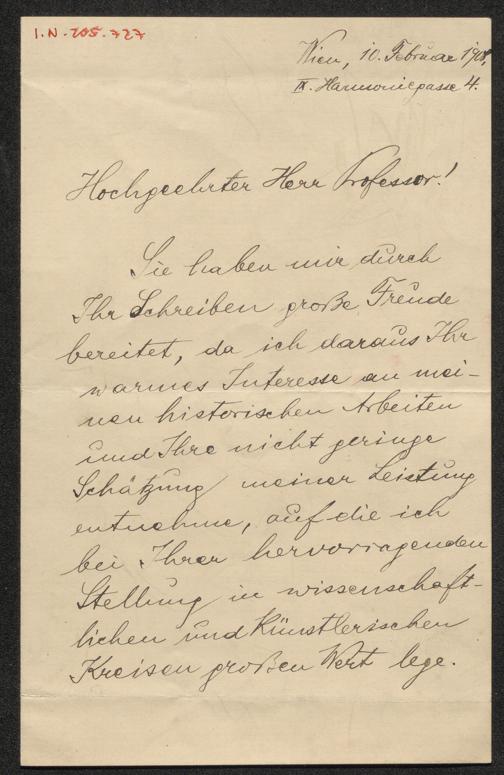 I.N. 205.727
Wien, 10. Februar 1908,
IX. Harmoniegasse 4.
Hochgeehrter Herr Professor!
Sie haben mir durch
Ihr Schreiben große Freude
bereitet, da ich daraus Ihr
warmes Interesse an mei-
nen historischen Arbeiten
und Ihre nicht geringe
Schätzung meiner Leistung
entnehme, auf die ich
bei Ihrer hervorragenden
Stellung in wissenschaft-
lichen und künstlerischen
Kreisen großen Wert lege.